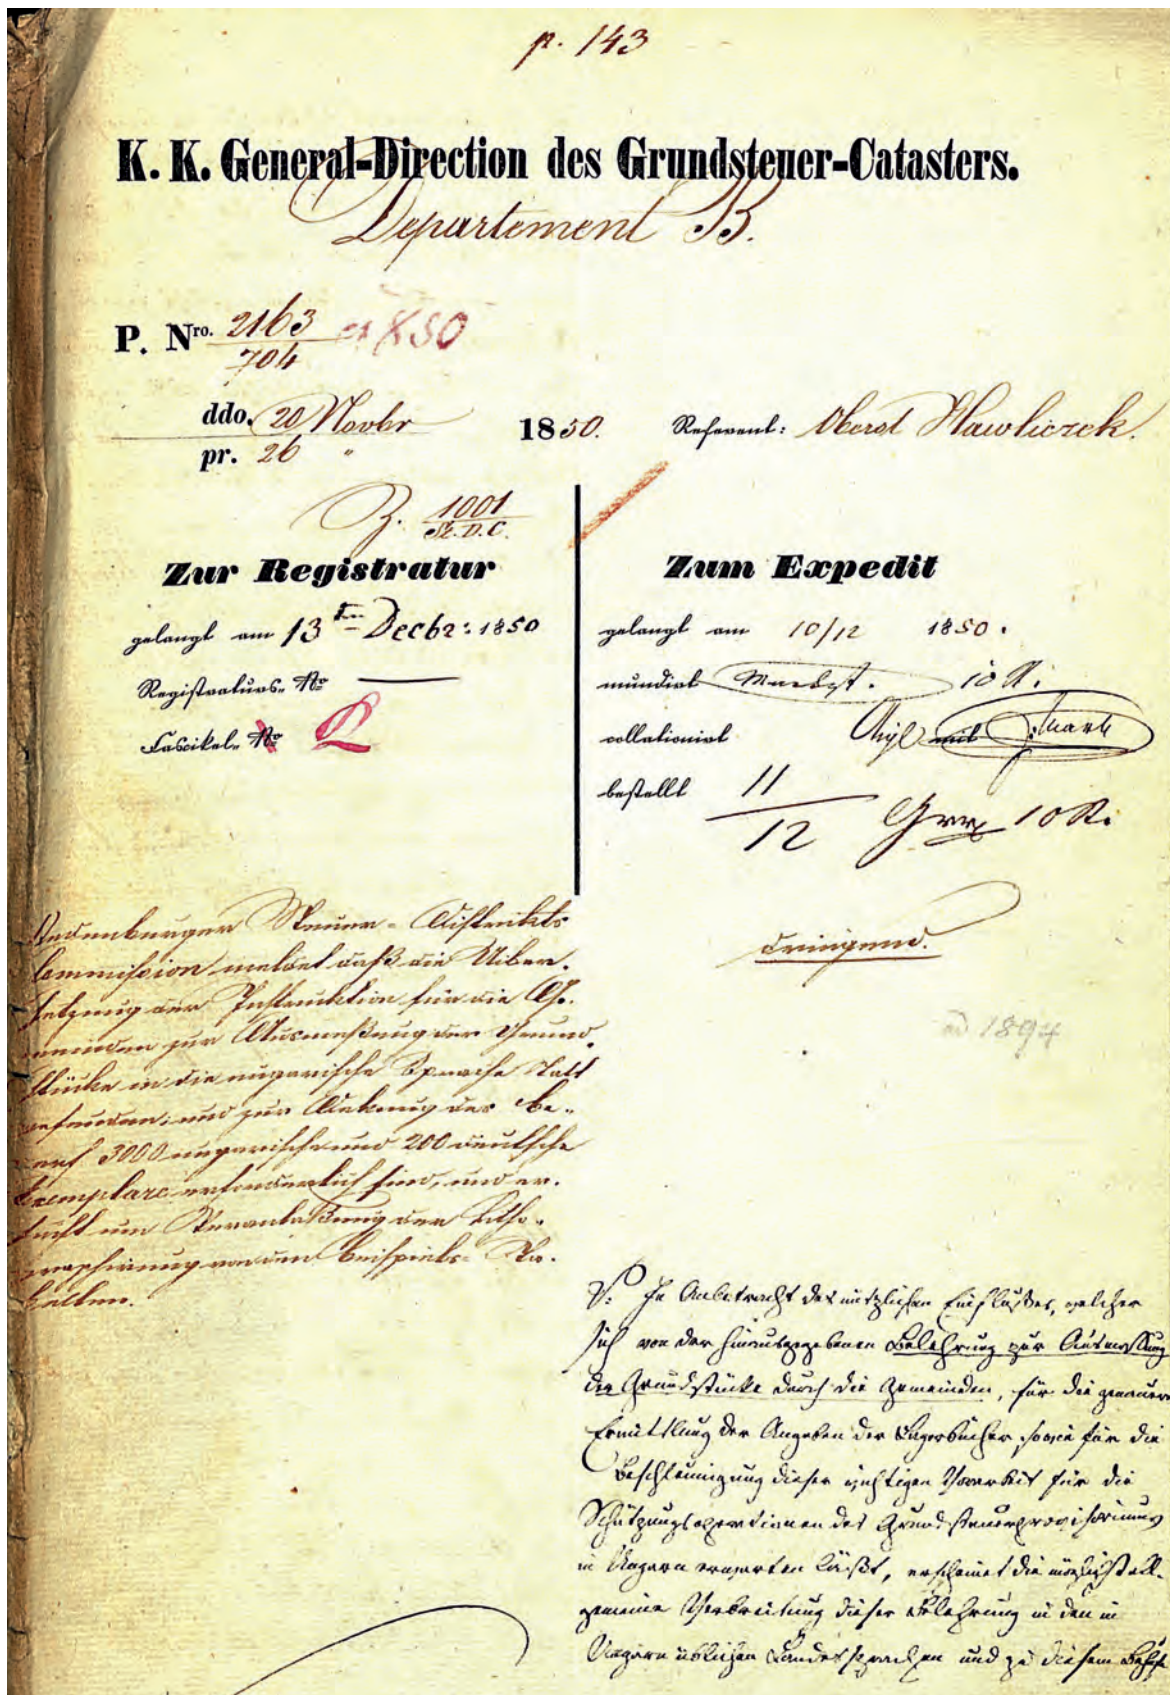 p. 143
K. K. General-Direction des Grundsteuer-Catasters.
Departement B.
P. Nro. 2163/704 1850
ddo. 20 Novbr 1850.
pr. 26 "
Referent: Oberst Hawliczek.
Z. 1001/St.D.C.
Zur Registratur
gelangt am 13ten Decbr: 1850
Registraturs-No
Fascikel-No
Zum Expedit
gelangt am 10/12 1850.
mundirt 10
collationirt mit
bestellt 11/12 10
dringend.
ad 1894
Oedenburger Steuer-Distrikts
Commission meldet daß die Ueber-
setzung der Instruktion für die Ge-
meinden zur Ausmeßung der Grund-
stücke in die ungarische Sprache statt
gefunden, und zur Dekung des Be-
darf 3000 ungarische und 200 deutsche
Exemplare erforderlich sind, und er-
sucht um Veranlaßung der Litho-
graphirung von den Beispiels-Ta-
bellen.
In Anbetracht des nützlichen Einflußes, welcher
sich von der hinausgegebenen Belehrung zur Ausmessung
der Grundstücke durch die Gemeinden, für die genauere
Ermittlung der Angaben der Lagerbücher, sowie für die
Beschleunigung dieser wichtigen Vorarbeit für die
Schätzungsoperationen des Grundsteuerprovisoriums
in Ungarn erwarten läßt, erscheinet die möglichst all-
gemeine Verbreitung dieser Belehrung in den in
Ungarn üblichen Landessprachen und zu diesem Behufe